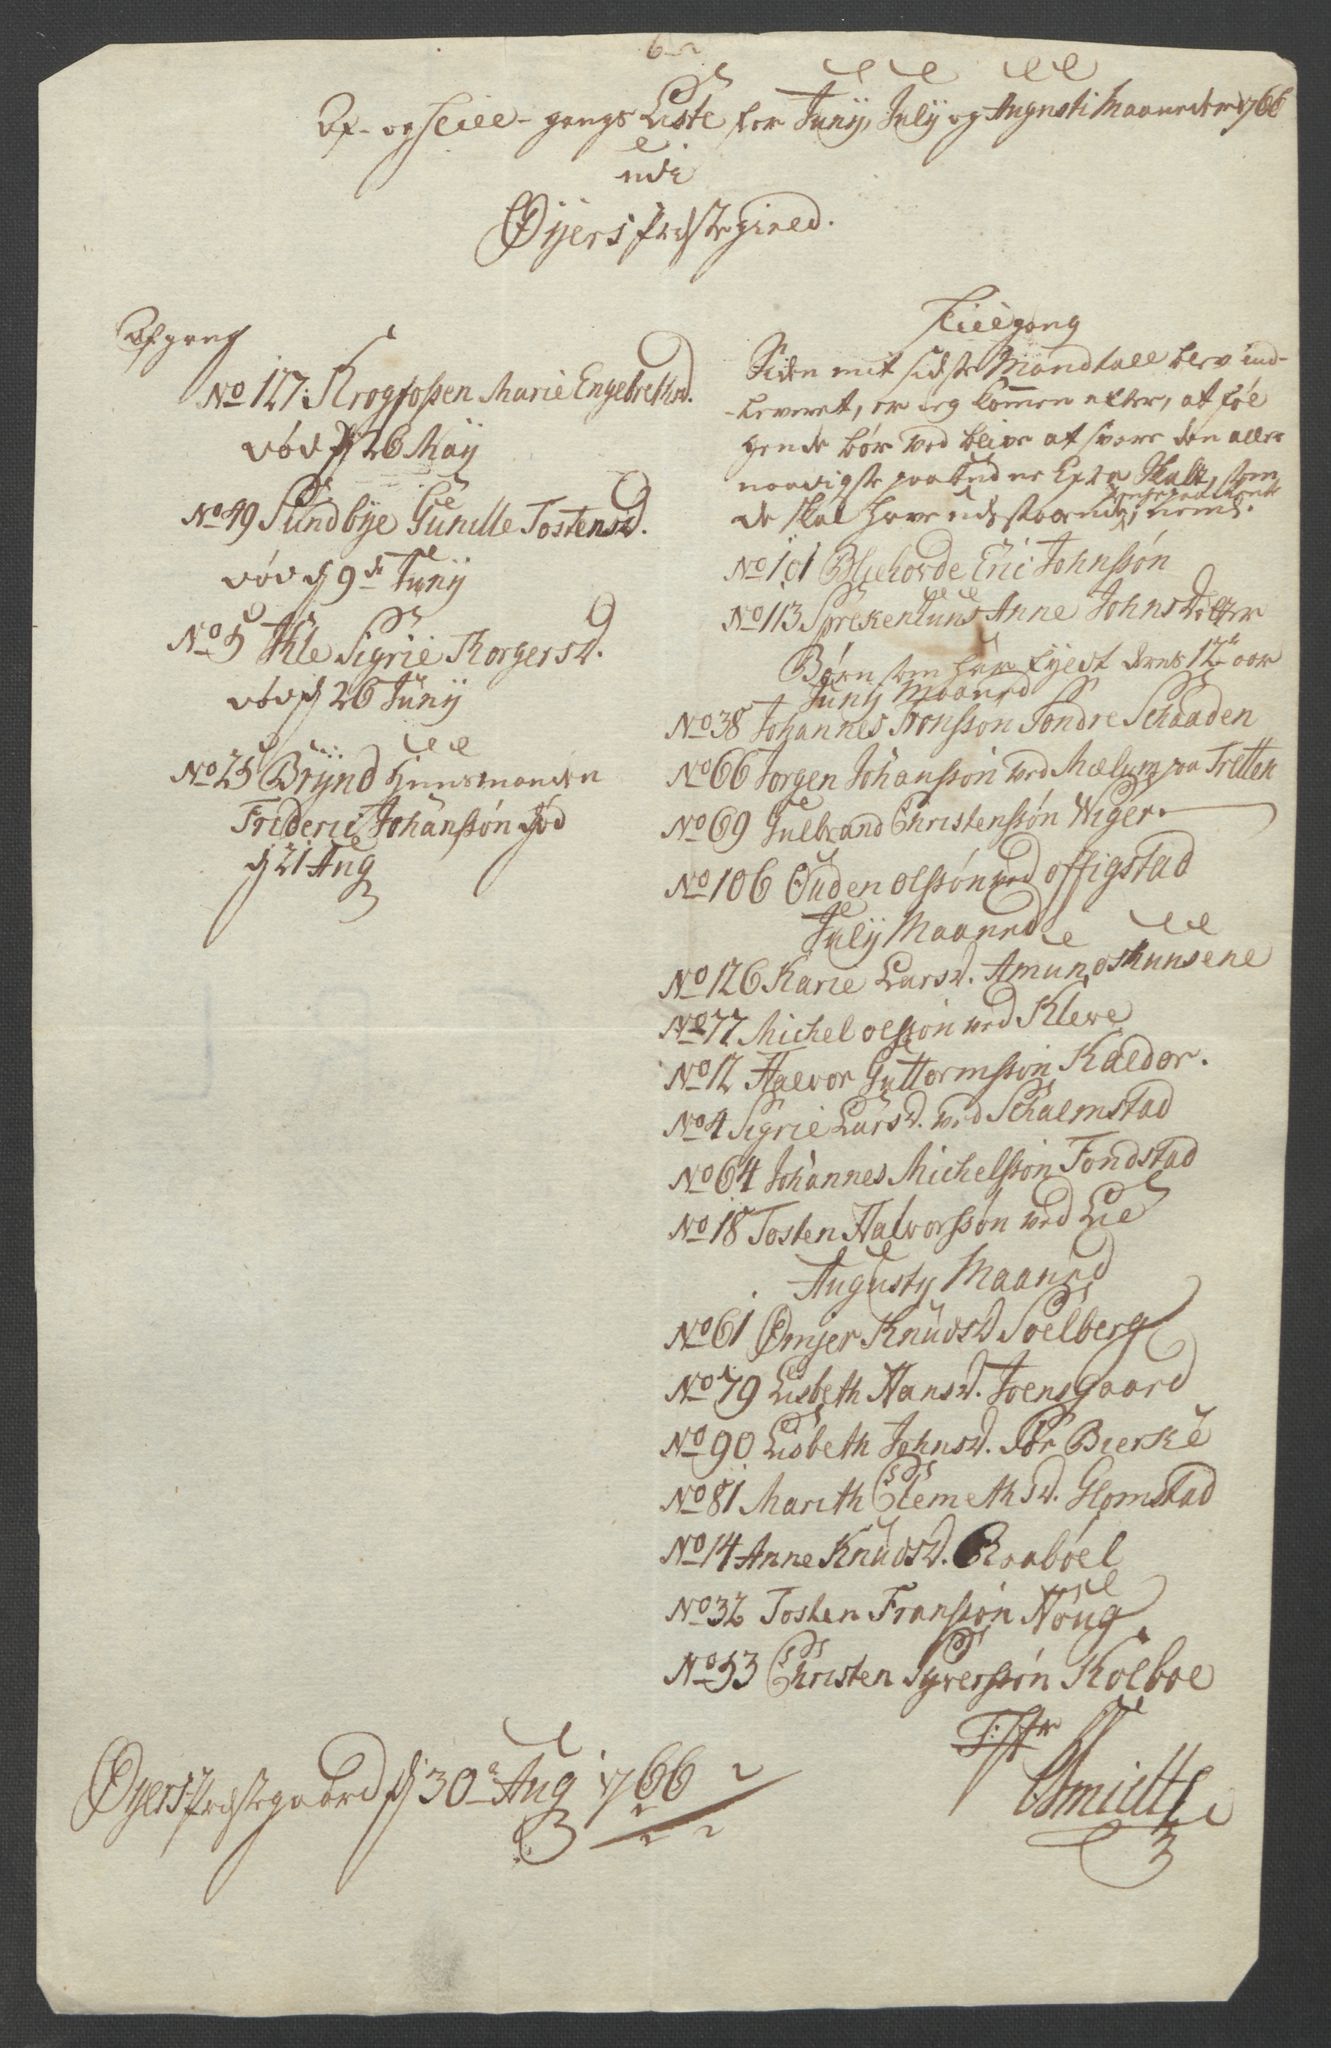 Af- og Till-gangs Liste for Junÿ, Julÿ og Augusti Maaneder 1766
udi
Øÿers Præstegield.
Afgang
No 127: Krogfossen Marie Engebrethsd.
død d 26 Maÿ
No 49 Sundbÿe Gunille Tostensd.
død d 9de Junÿ
No 5 Kle Sigrie Torgersd.
død d 26 Junÿ
No 25 Brÿnd Huusmanden
Frideric Johanssøn død
d 21 Aug
Tillgang
Siden mit sidste Mandtall blev ind-
leveret, er ieg kommen efter, at føl
gende bør ved blive at svare den aller
naadigste paabudne Extra Skatt, som
de skal have udstaaende, nemlig.
No 101 Blichorde Eric Johnssøn
No 113 Sprekenhuus Anne Johns Dotter
Børn som har fyldt deres 12te aar
Junÿ Maaned
No 38 Johannes Tronssøn Søndre Schaaden
No 66 Jørgen Johanssøn ved Mælum paa Tretten
No 69 Gulbrand Christenssøn Wiger
No 106 Ouden olssøn ved offigstad
Julÿ Maaned
No 126 Karie Larsd. Amundshunsene
No 77 Michel olssøn ved Kleve
No 12 Halvor Guttormssøn Kaldor.
No 4 Sigrie Larsd. ved Schalmstad
No 64 Johannes Michelssøn Fondstad
No 18 Tosten Halvorssøn ved Lie
Augustÿ Maaned
No 61 Ømjer Knudsd Solberg
No 79 Lisbeth Hansd. Joensgaard
No 90 Lisbeth Johnsd. Sør Bierke
No 81 Marith Clemethsd. Glomstad
No 14 Anne Knudsd. Raabøel
No 32 Tosten Franssøn Houg
No 53 Christen Syverssøn Kolboe
Øyers Præstegaard d 30te Aug 1766
Smidth